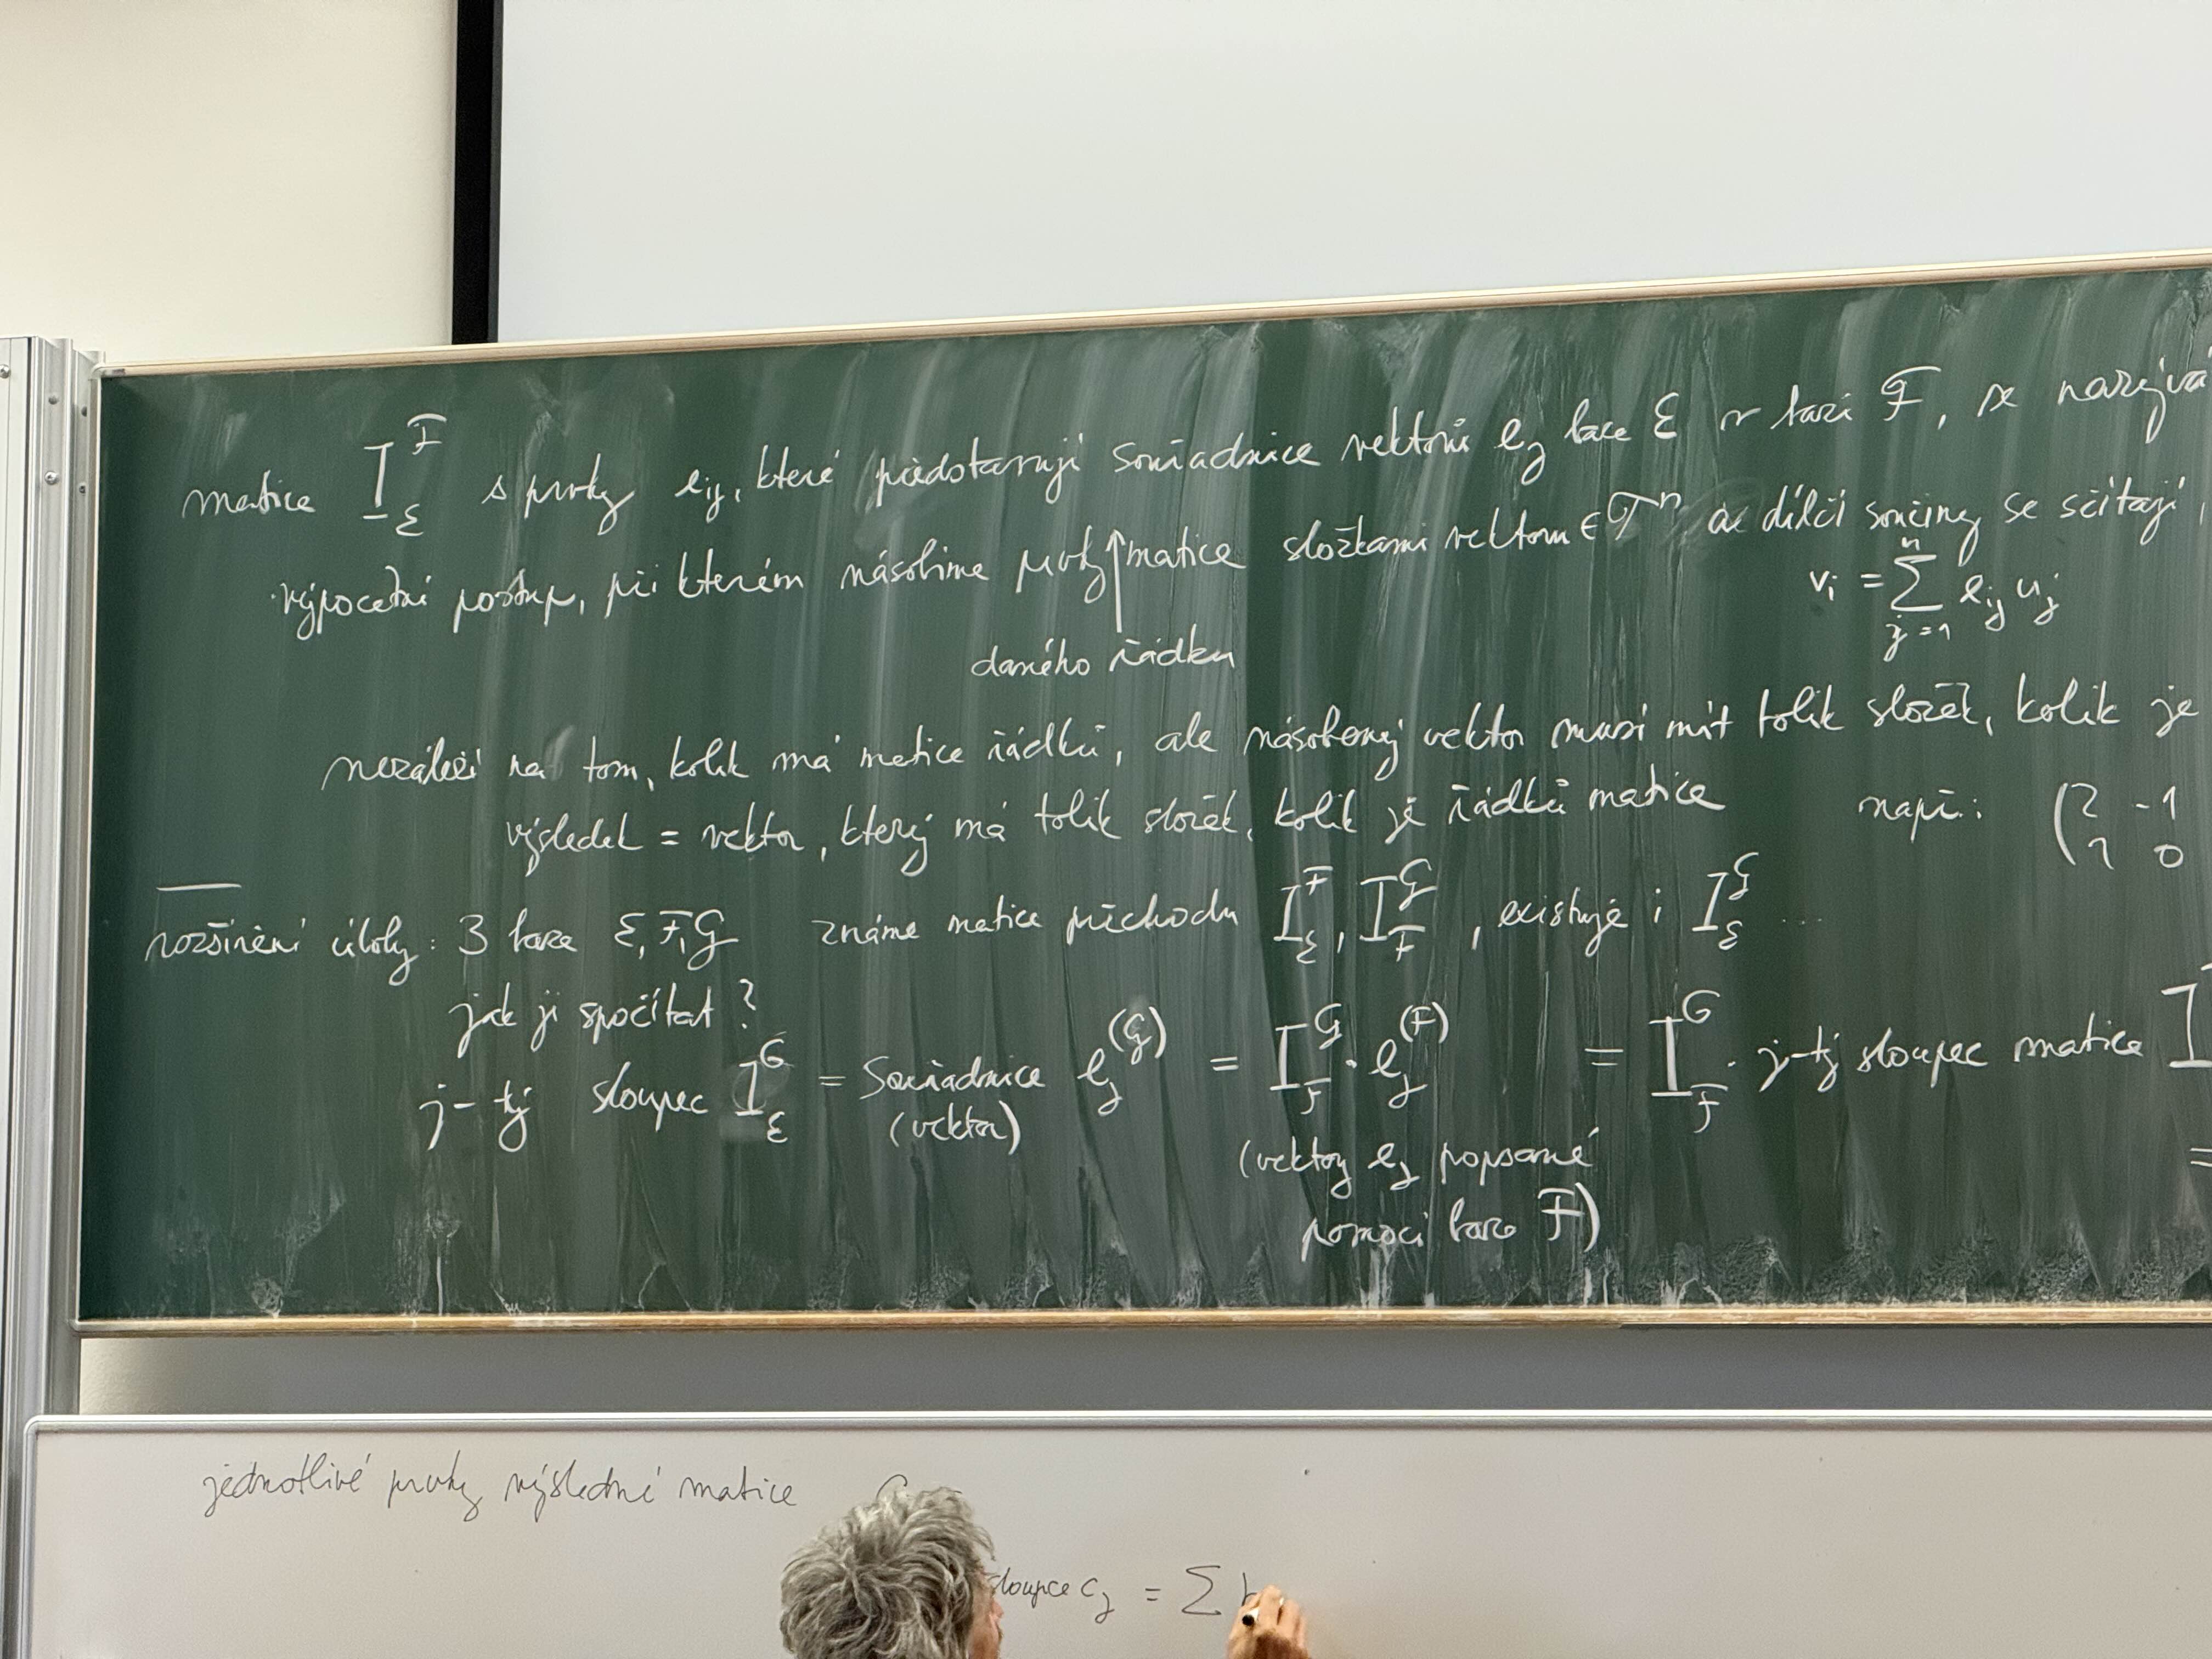 matice I_ε^F s prvky e_ij, které představují souřadnice vektorů e_j báze ε v bázi F, se nazývá
výpočetní postup, při kterém násobíme prvky matice složkami vektoru ∈ T^n a dílčí součiny se sčítají
daného řádku
v_i = Σ_{j=1}^n e_ij u_j
nezáleží na tom, kolik má matice řádků, ale násobený vektor musí mít tolik složek, kolik je
výsledek = vektor, který má tolik složek, kolik je řádků matice
např: (2 -1
1 0
rozšíření úlohy: 3 báze ε, F, G známe matice přechodu I_ε^F, I_F^G, existuje i I_ε^G ...
jak ji spočítat?
j-tý sloupec I_ε^G = souřadnice e_j^(G) = I_F^G · e_j^(F) = I_F^G · j-tý sloupec matice I
(vektor)
(vektory e_j popsané
pomocí báze F)
=
jednotlivé prvky výsledné matice
sloupce c_j = Σ